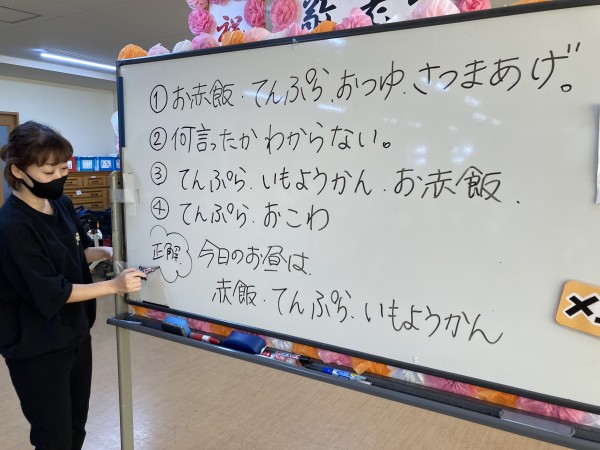 祝 敬老
①お赤飯.てんぷら.おつゆ.さつまあげ。
②何言ったかわからない。
③てんぷら.いもようかん.お赤飯.
④てんぷら.おこわ
正解 今日のお昼は
赤飯.てんぷら.いもようかん